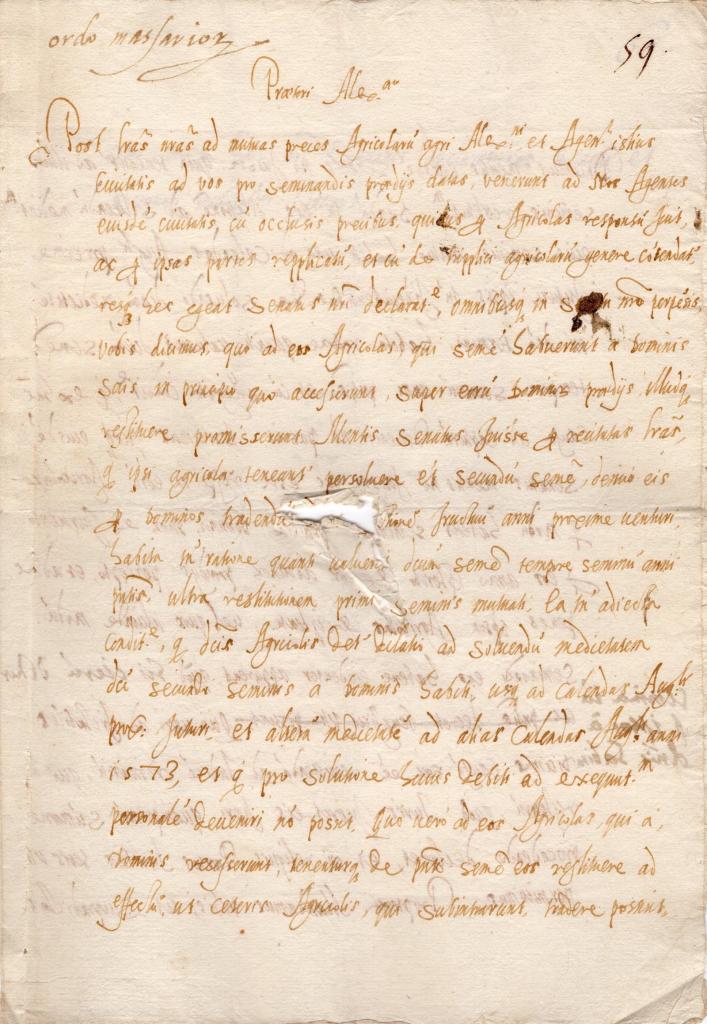 ordo massarior
59.
Praetori Alex.
Post lras nras ad mutuas preces Agricolarū agri Alex. et Agen. istius
Civitatis ad vos pro seminandis praedijs datas, venerunt ad Nos Agentes
eiusdē civitatis, cū occlusis precibus, quibus p Agricolas responsū fuit,
ac p ipsas partes replicatū, et cū de triplici agricolarū genere cōtendat
hec egeat Senatus nri declarat, omnibusq in nro perpēsis,
Vobis dicimus, quo ad eos Agricolas, qui semē habuerunt a dominis
suis in principio quo accesserunt super eorū dominor praedijs, illudq
restituere promisserunt Mentis Senatus fuisse p recitatas lras,
q ipsi agricolae teneant persolvere et secundū semē, denuo eis
p dominos tradendū fructuū anni proxime venturi,
habita tn ratione quanti valuerit dcū semē tempore seminū anni
pntis ultra restitutionem primi seminis mutuati. Ea tn adiecta
condit, q dcis Agricolis det dilatio ad solvendū medietatem
dci secundi seminis a dominis habiti, usq ad Calendas Aug.
prox. futuri et alterā medietatē ad alias Calendas Aug. anni
1573, et q pro solutione huius debiti ad exequut.
personalē deveniri nō possit. Quo vero ad eos Agricolas, qui a
dominis recesserunt, tenenturq de pnti semē eos restituere ad
effectū, ut ceteris Agricolis, qui subintrarunt, tradere possint,